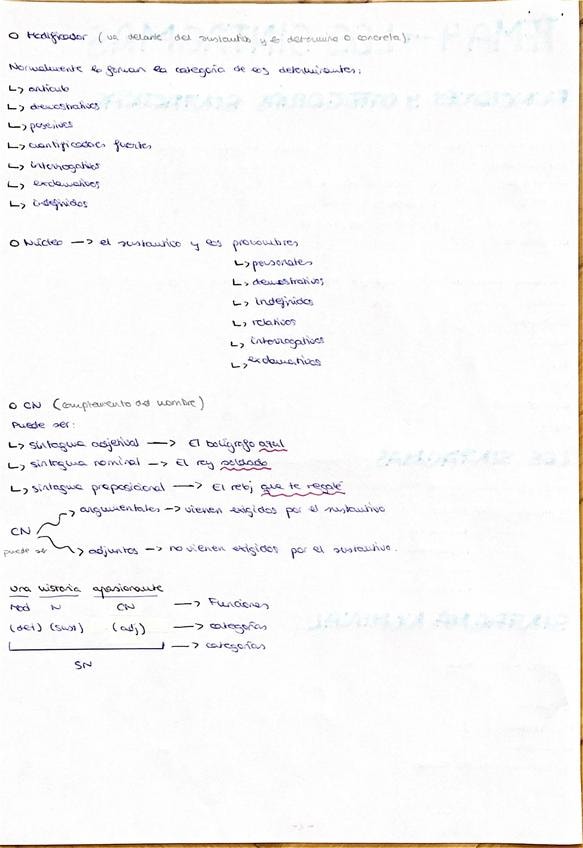 O Modificador (va delante del sustantivo y lo determina o concreta).
Normalmente lo forman la categoría de los determinantes:
↳ artículo
↳ demostrativos
↳ posesivos
↳ cuantificadores fuertes
↳ interrogativos
↳ exclamativos
↳ indefinidos
O Núcleo → el sustantivo y los pronombres
↳ personales
↳ demostrativos
↳ indefinidos
↳ relativos
↳ interrogativos
↳ exclamativos
O CN (complemento del nombre)
Puede ser:
↳ sintagma adjetival → El bolígrafo azul
↳ sintagma nominal → El rey soldado
↳ sintagma preposicional → El reloj que te regalé
→ argumentales → vienen exigidos por el sustantivo
CN
puede ser
→ adjuntos → no vienen exigidos por el sustantivo.
una historia apasionante
Mod N CN → Funciones
(det) (sust) (adj) → categorías
→ categorías
SN